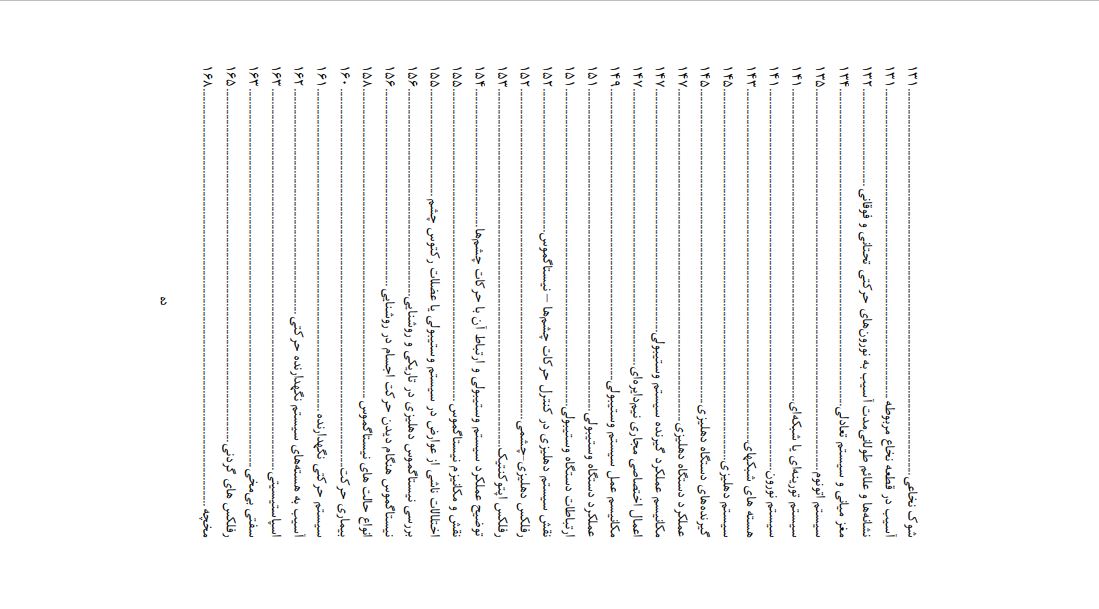 شوک نخاعی ........ ۱۳۱
آسیب در قطعه نخاع مربوطه ........ ۱۳۱
نشانه‌ها و علائم طولانی‌مدت آسیب به نورون‌های حرکتی تحتانی و فوقانی ........ ۱۳۲
مغز میانی و سیستم تعادلی ........ ۱۳۴
سیستم اتونوم ........ ۱۳۵
سیستم تورینه‌ای یا شبکه‌ای ........ ۱۴۱
سیستم نورون ........ ۱۴۱
هسته های شبکهای ........ ۱۴۳
سیستم دهلیزی ........ ۱۴۵
گیرنده‌های دستگاه دهلیزی ........ ۱۴۵
عملکرد دستگاه دهلیزی ........ ۱۴۷
مکانیسم عملکرد گیرنده سیستم وستیبولی ........ ۱۴۷
اعمال اختصاصی مجاری نیم‌دایره‌ای ........ ۱۴۷
مکانیسم عمل سیستم وستیبولی ........ ۱۴۹
عملکرد دستگاه وستیبولی ........ ۱۵۱
ارتباطات دستگاه وستیبولی ........ ۱۵۱
نقش سیستم دهلیزی در کنترل حرکات چشم‌ها – نیستاگموس ........ ۱۵۲
رفلکس دهلیزی-چشمی ........ ۱۵۲
رفلکس اپتوکنتیک ........ ۱۵۳
توضیح عملکرد سیستم وستیبولی و ارتباط آن با حرکات چشم‌ها ........ ۱۵۴
نقش و مکانیزم نیستاگموس ........ ۱۵۵
اختلالات ناشی از عوارض در سیستم وستیبولی یا عضلات رکتوس چشم ........ ۱۵۵
بررسی نیستاگموس دهلیزی در تاریکی و روشنایی ........ ۱۵۶
نیستاگموس هنگام دیدن حرکت اجسام در روشنایی ........ ۱۵۶
انواع حالت های نیستاگموس ........ ۱۵۸
بیماری حرکت ........ ۱۶۰
سیستم حرکتی نگهدارنده ........ ۱۶۱
آسیب به هسته‌های سیستم نگهدارنده حرکتی ........ ۱۶۲
اسپاستیسیتی ........ ۱۶۳
سفتی بی‌مخی ........ ۱۶۳
رفلکس های گردنی ........ ۱۶۵
مخچه ........ ۱۶۸